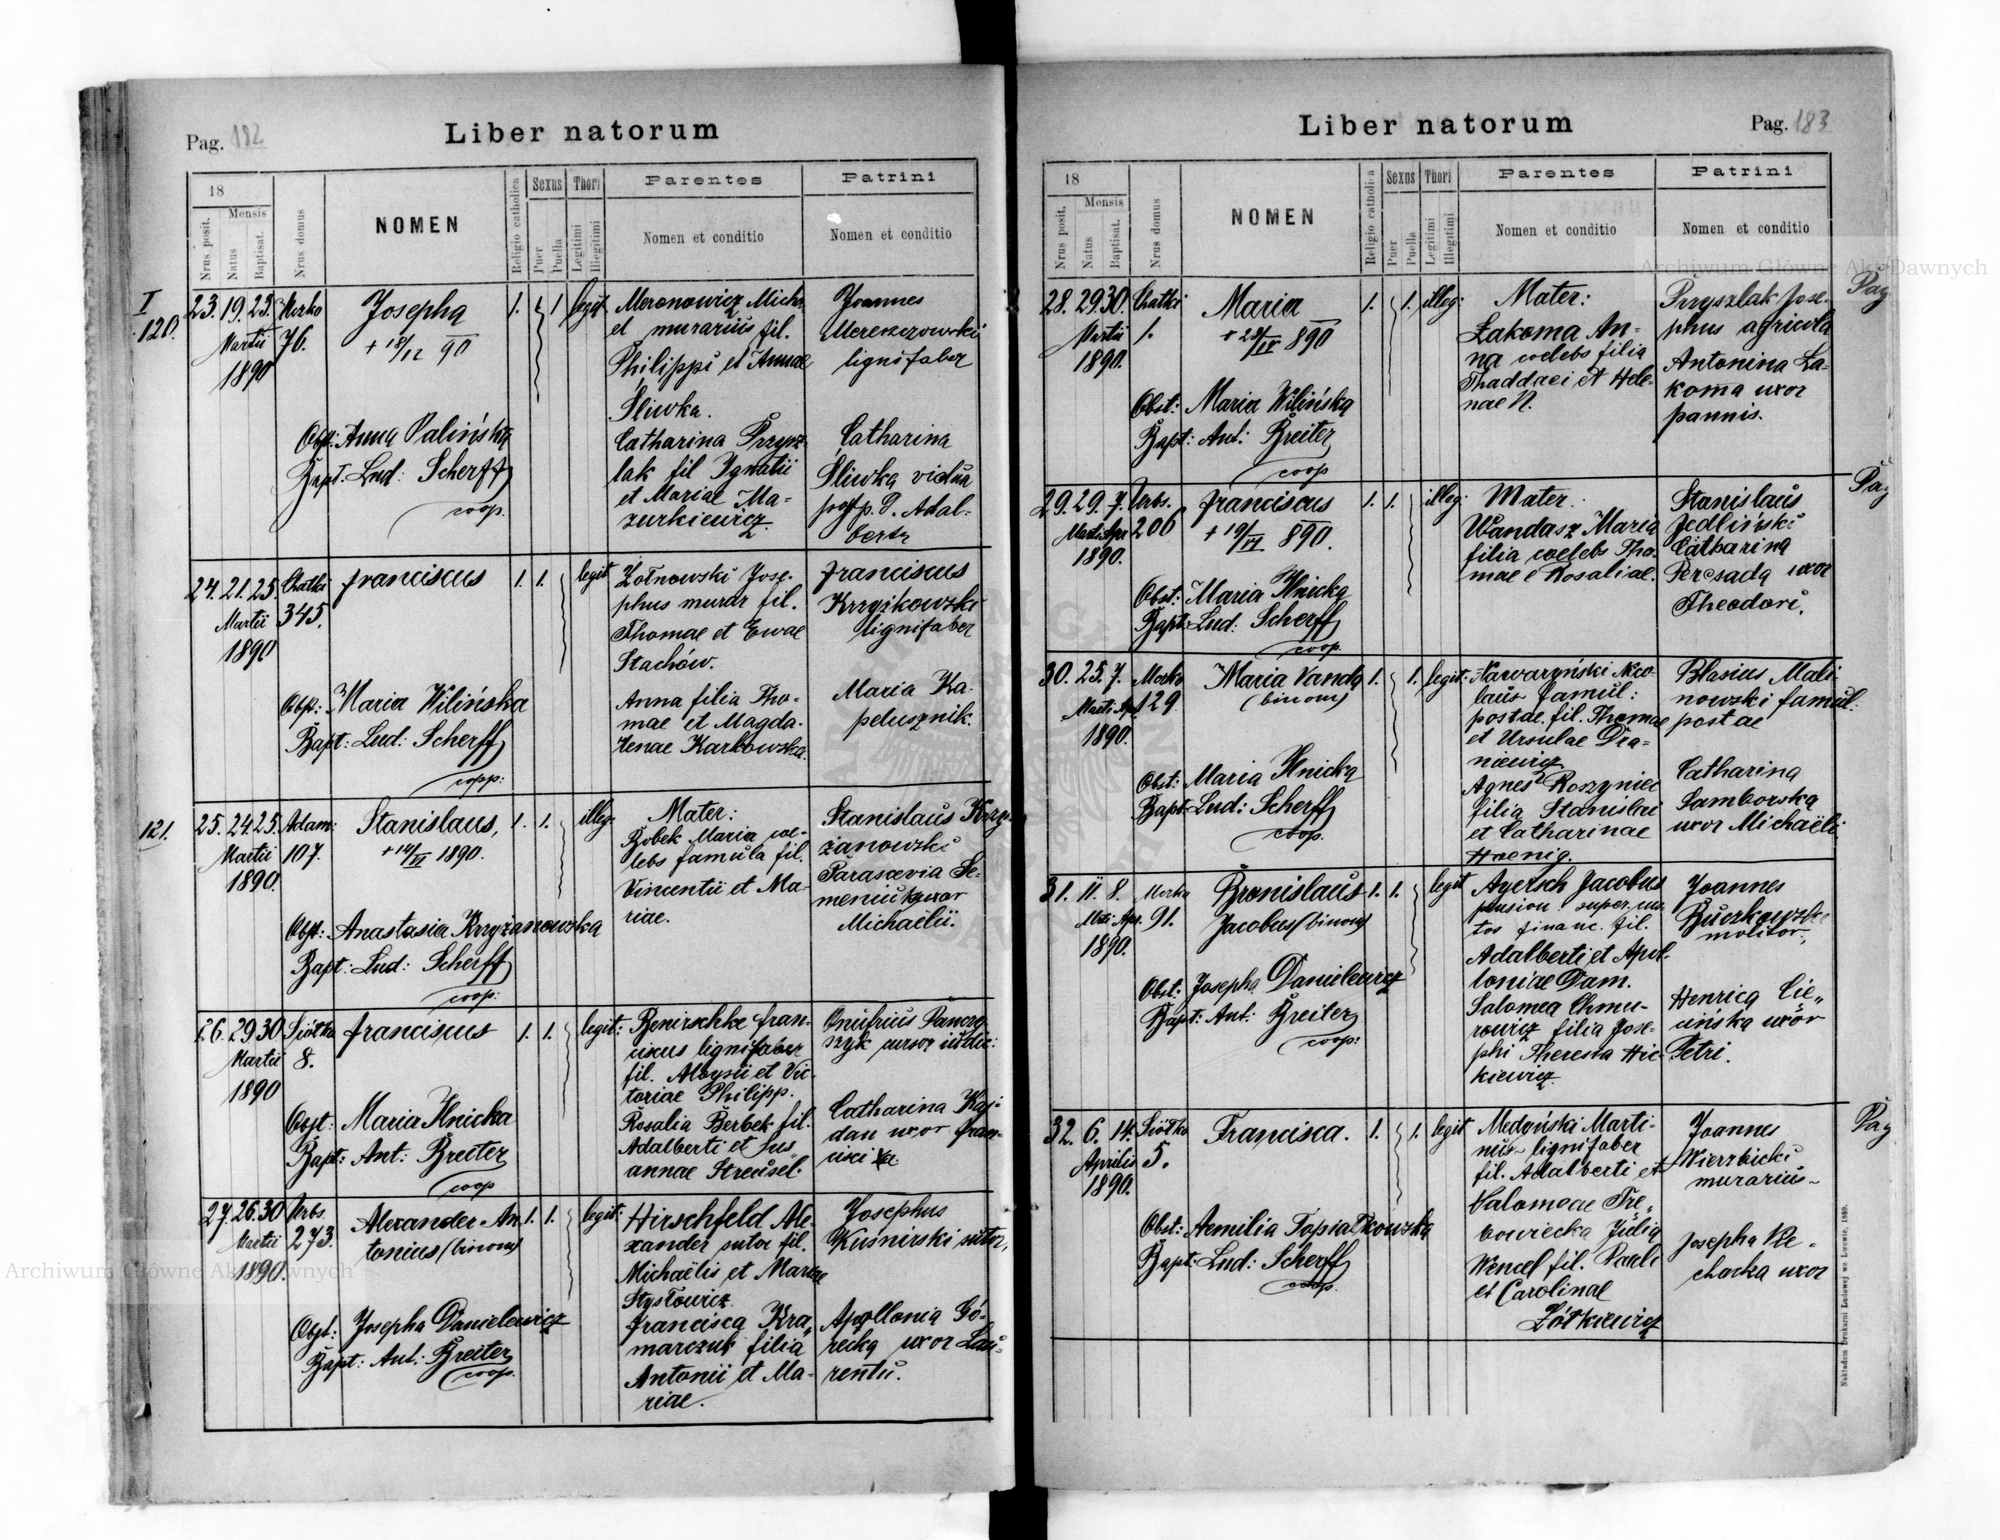 Pag. 182
Liber natorum
18
Nrus posit.
Mensis
Natus
Baptisat.
Nrus domus
NOMEN
Religio catholica
Sexus
Puer
Puella
Thori
Legitimi
Illegitimi
Parentes
Nomen et conditio
Patrini
Nomen et conditio
I
120.
23. 19. 23.
Martii
1890
76.
Josepha
+ 18/12 90
1. 1 legit
Obst: Anna Palińska
Bapt: Lud: Scherff
coop.
Meronowicz Micha
et murarius fil.
Philippi et Annae
Śliwka.
Catharina Przysz
lak fil Ignatii
et Mariae Ma-
zurkiewicz.
Joannes
Mereszczowski
lignifaber
Catharina
Śliwka vidua
Adal-
24. 21. 25.
Martii
1890
Chatki
345.
Franciscus
1. 1. legit
Obst: Maria Wilińska
Bapt: Lud: Scherff
coop:
Żotnowski Jose-
phus murar fil.
Thomae et Ewae
Stachów.
Anna filia Tho-
mae et Magda-
lenae Karbowska.
Franciscus
lignifaber
Maria Ka-
pelusznik.
121.
25. 24. 25.
Martii
1890.
Adam:
107.
Stanislaus,
+ 14/IV 1890.
1. 1. illeg:
Obst: Anastasia Krzyżanowska
Bapt: Lud: Scherff
coop:
Mater:
Bobek Maria coe-
lebs famula fil.
Vincentii et Ma-
riae.
Stanislaus Krzy-
żanowski
Parascevia Se-
meniuk uxor
Michaelii.
26. 29. 30
Martii
1890
Siółka
8.
Franciscus
1. 1. legit:
Obst: Maria Hnicka
Bapt: Ant: Breiter
coop
Benirschke Fran-
ciscus lignifaber
fil. Aloysii et Vic-
toriae Philipp.
Rosalia Berbek fil.
Adalberti et Sus
annae Streusel.
Onufrius Pancze
szyk cursor iudic:
Catharina Kaj-
dan uxor Fran-
cisci
27. 26. 30
Martii
1890.
Urbs.
273.
Alexander An
tonius (binom)
1. 1. legit:
Obst: Josepha Danielewicz
Bapt: Ant: Breiter
coop.
Hirschfeld Ale-
xander sutor fil.
Michaëlis et Mariae
Stysłowicz.
Francisca Kra
marczuk filia
Antonii et Ma-
riae.
Josephus
Kuśnirski sutor,
Apollonia Gó-
recka uxor Lau-
rentii.
Liber natorum
Pag. 183
18
Nrus posit.
Mensis
Natus
Baptisat.
Nrus domus
NOMEN
Religio catholica
Sexus
Puer
Puella
Thori
Legitimi
Illegitimi
Parentes
Nomen et conditio
Patrini
Nomen et conditio
28. 29. 30.
Martii
1890.
Chatki
1.
Maria
+ 28/IV 890
1. 1. illeg:
Obst: Maria Wilińska
Bapt: Ant: Breiter
coop
Mater:
Łakoma An-
na coelebs filia
Thaddaei et Hele-
nae N.
Przyszlak Jose-
phus agricola
Antonina Ła-
koma uxor
pannis.
29. 29. 7.
Marti Apr
1890.
Urbs.
206
Franciscus
+ 19/IV 890.
1. 1. illeg:
Obst: Maria Hnicka
Bapt: Lud: Scherff
coop.
Mater:
Wandasz Maria
filia coelebs Tho-
mae e Rosaliae.
Stanislaus
Jedliński
Catharina
Persada uxor
Theodori.
30. 25. 7.
Marti Apr
1890.
129
Maria Vanda
(binom)
1. 1. legit:
Obst: Maria Hnicka
Bapt: Lud: Scherff
coop.
Nawaryński Nico-
laus famul:
postae. fil. Thomae
et Ursulae Dia-
niewicz
Agnes Roszyniec
filia Stanislai
et Catharinae
Hoenig.
Blasius Mali-
nowski famul.
postae
Catharina
Samborska
uxor Michaëli
31. 11. 8.
Mti Apr.
1890.
91.
Bronislaus
Jacobus (binom)
1. 1. legit
Obst: Josepha Danielewicz
Bapt: Ant: Breiter
coop:
Ayersch Jacobus
pension
financ. fil.
Adalberti et Apol-
loniae Dam.
Salomea Chmu-
rowicz filia Jose-
phi Theresia Hic-
kiewicz.
Joannes
molitor,
Henrica Cie„
cińska uxor
Petri.
32. 6. 14.
Aprilis
1890.
Siółka
5.
Francisca.
1. 1. legit
Obst: Aemilia Topiatkowska
Bapt: Lud: Scherff
coop.
Medyński Marti-
nus lignifaber
fil. Adalberti et
Salomeae Tre„
bowiecka Julia
Wencel fil. Pauli
et Carolinae
Żółkiewicz
Joannes
Wierzbicki
murarius
Josepha Re-
chacka uxor
Nakładem Drukarni Ludowej we Lwowie. 1889.
Archiwum Główne Akt Dawnych
Archiwum Główne Akt Dawnych